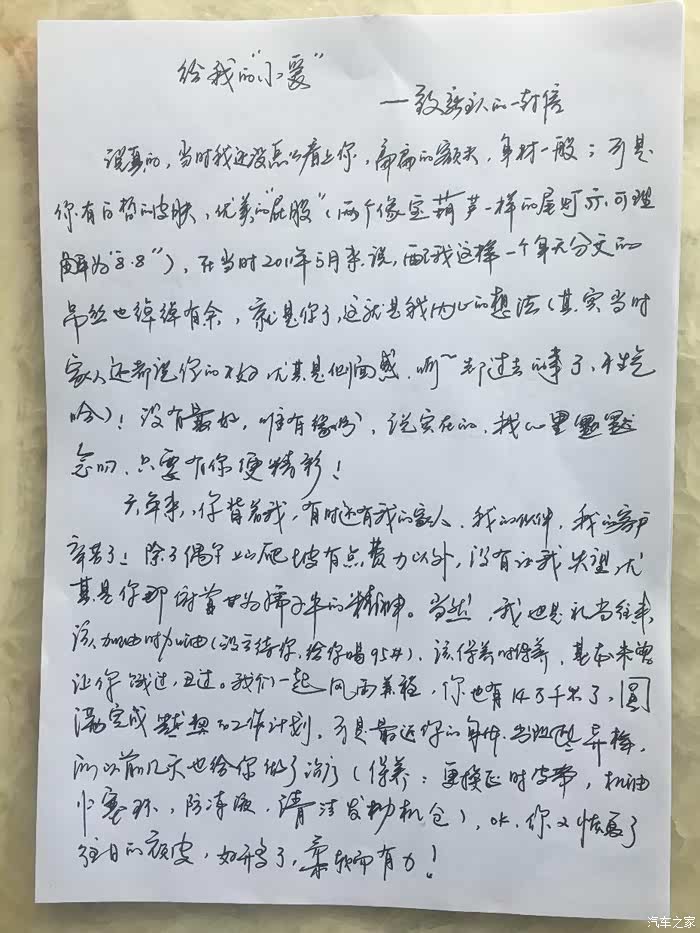 给我的"小爱"
一致 的一封信
说真的,当时我还没怎么看上你,扁扁的额头,身材一般;可是
你有白皙的皮肤,优美的"屁股"(两个像宝葫芦一样的尾灯,可理
解为"8.8"),在当时2011年5月来说,配我这样一个身无分文的
吊丝也绰绰有余,就是你了,这就是我内心的想法(其实当时
家人还都说你的不好,尤其是侧面感,啊~都过去的事了,不生气
哈)!没有最好,唯有缘分,说实在的,我心里默默
念叨,只要有你便精彩!
六年来,你背着我,有时还有我的家人、我的伙伴,我的客户
辛苦了!除了偶尔上山爬坡有点费力以外,没有让我失望,尤
其是你那俯首甘为孺子牛的精神。当然,我也是礼当往来,
该加油时加油(没亏待你,给你喝95#),该保养时保养,基本未曾
让你饿过,丑过。我们一起风雨兼程,你也有14万千米了,圆
满完成 的工作计划,可是最近你的身体 异样,
所以前几天也给你做了治疗(保养:更换正时皮带,机油
火塞 ,防冻液,清洁发动机仓),OK,你又恢复了
往日的顽皮,好开 了, 而有力!
汽车之家